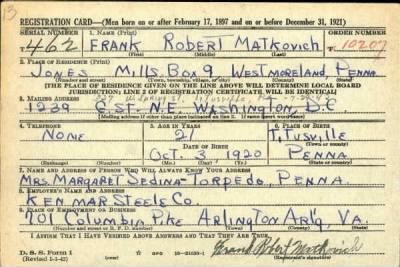 REGISTRATION CARD—(Men born on or after February 17, 1897 and on or before December 31, 1921)
SERIAL NUMBER 1. NAME (Print) ORDER NUMBER
T 462 FRANK ROBERT MATKOVICH 10207
(First) (Middle) (Last)
2. PLACE OF RESIDENCE (Print)
JONES MILLS BOX 9, WESTMORELAND, PENNA.
(Number and street) (Town, township, village, or city) (County) (State)
[THE PLACE OF RESIDENCE GIVEN ON THE LINE ABOVE WILL DETERMINE LOCAL BOARD
JURISDICTION; LINE 2 OF REGISTRATION CERTIFICATE WILL BE IDENTICAL]
3. MAILING ADDRESS
1229 C. ST. N.E. WASHINGTON, D.C
(Mailing address if other than place indicated on line 2. If same insert word same)
4. TELEPHONE 5. AGE IN YEARS 6. PLACE OF BIRTH
NONE 21 TITUSVILLE
DATE OF BIRTH
OCT. 3, 1920 PENNA
(Exchange) (Number) (Mo.) (Day) (Yr.) (State or country)
7. NAME AND ADDRESS OF PERSON WHO WILL ALWAYS KNOW YOUR ADDRESS
MRS. MARGARET SEDINA-TORPEDO, PENNA.
8. EMPLOYER'S NAME AND ADDRESS
KENMAR STEEL CO.
9. PLACE OF EMPLOYMENT OR BUSINESS
COLUMBIA PIKE ARLINGTON ARLG, VA.
(Number and street or R. F. D. number) (Town) (County) (State)
I AFFIRM THAT I HAVE VERIFIED ABOVE ANSWERS AND THAT THEY ARE TRUE.
D. S. S. Form 1
(Revised 1-1-42) GPO 16—21630-1 Frank Robert Matkovich